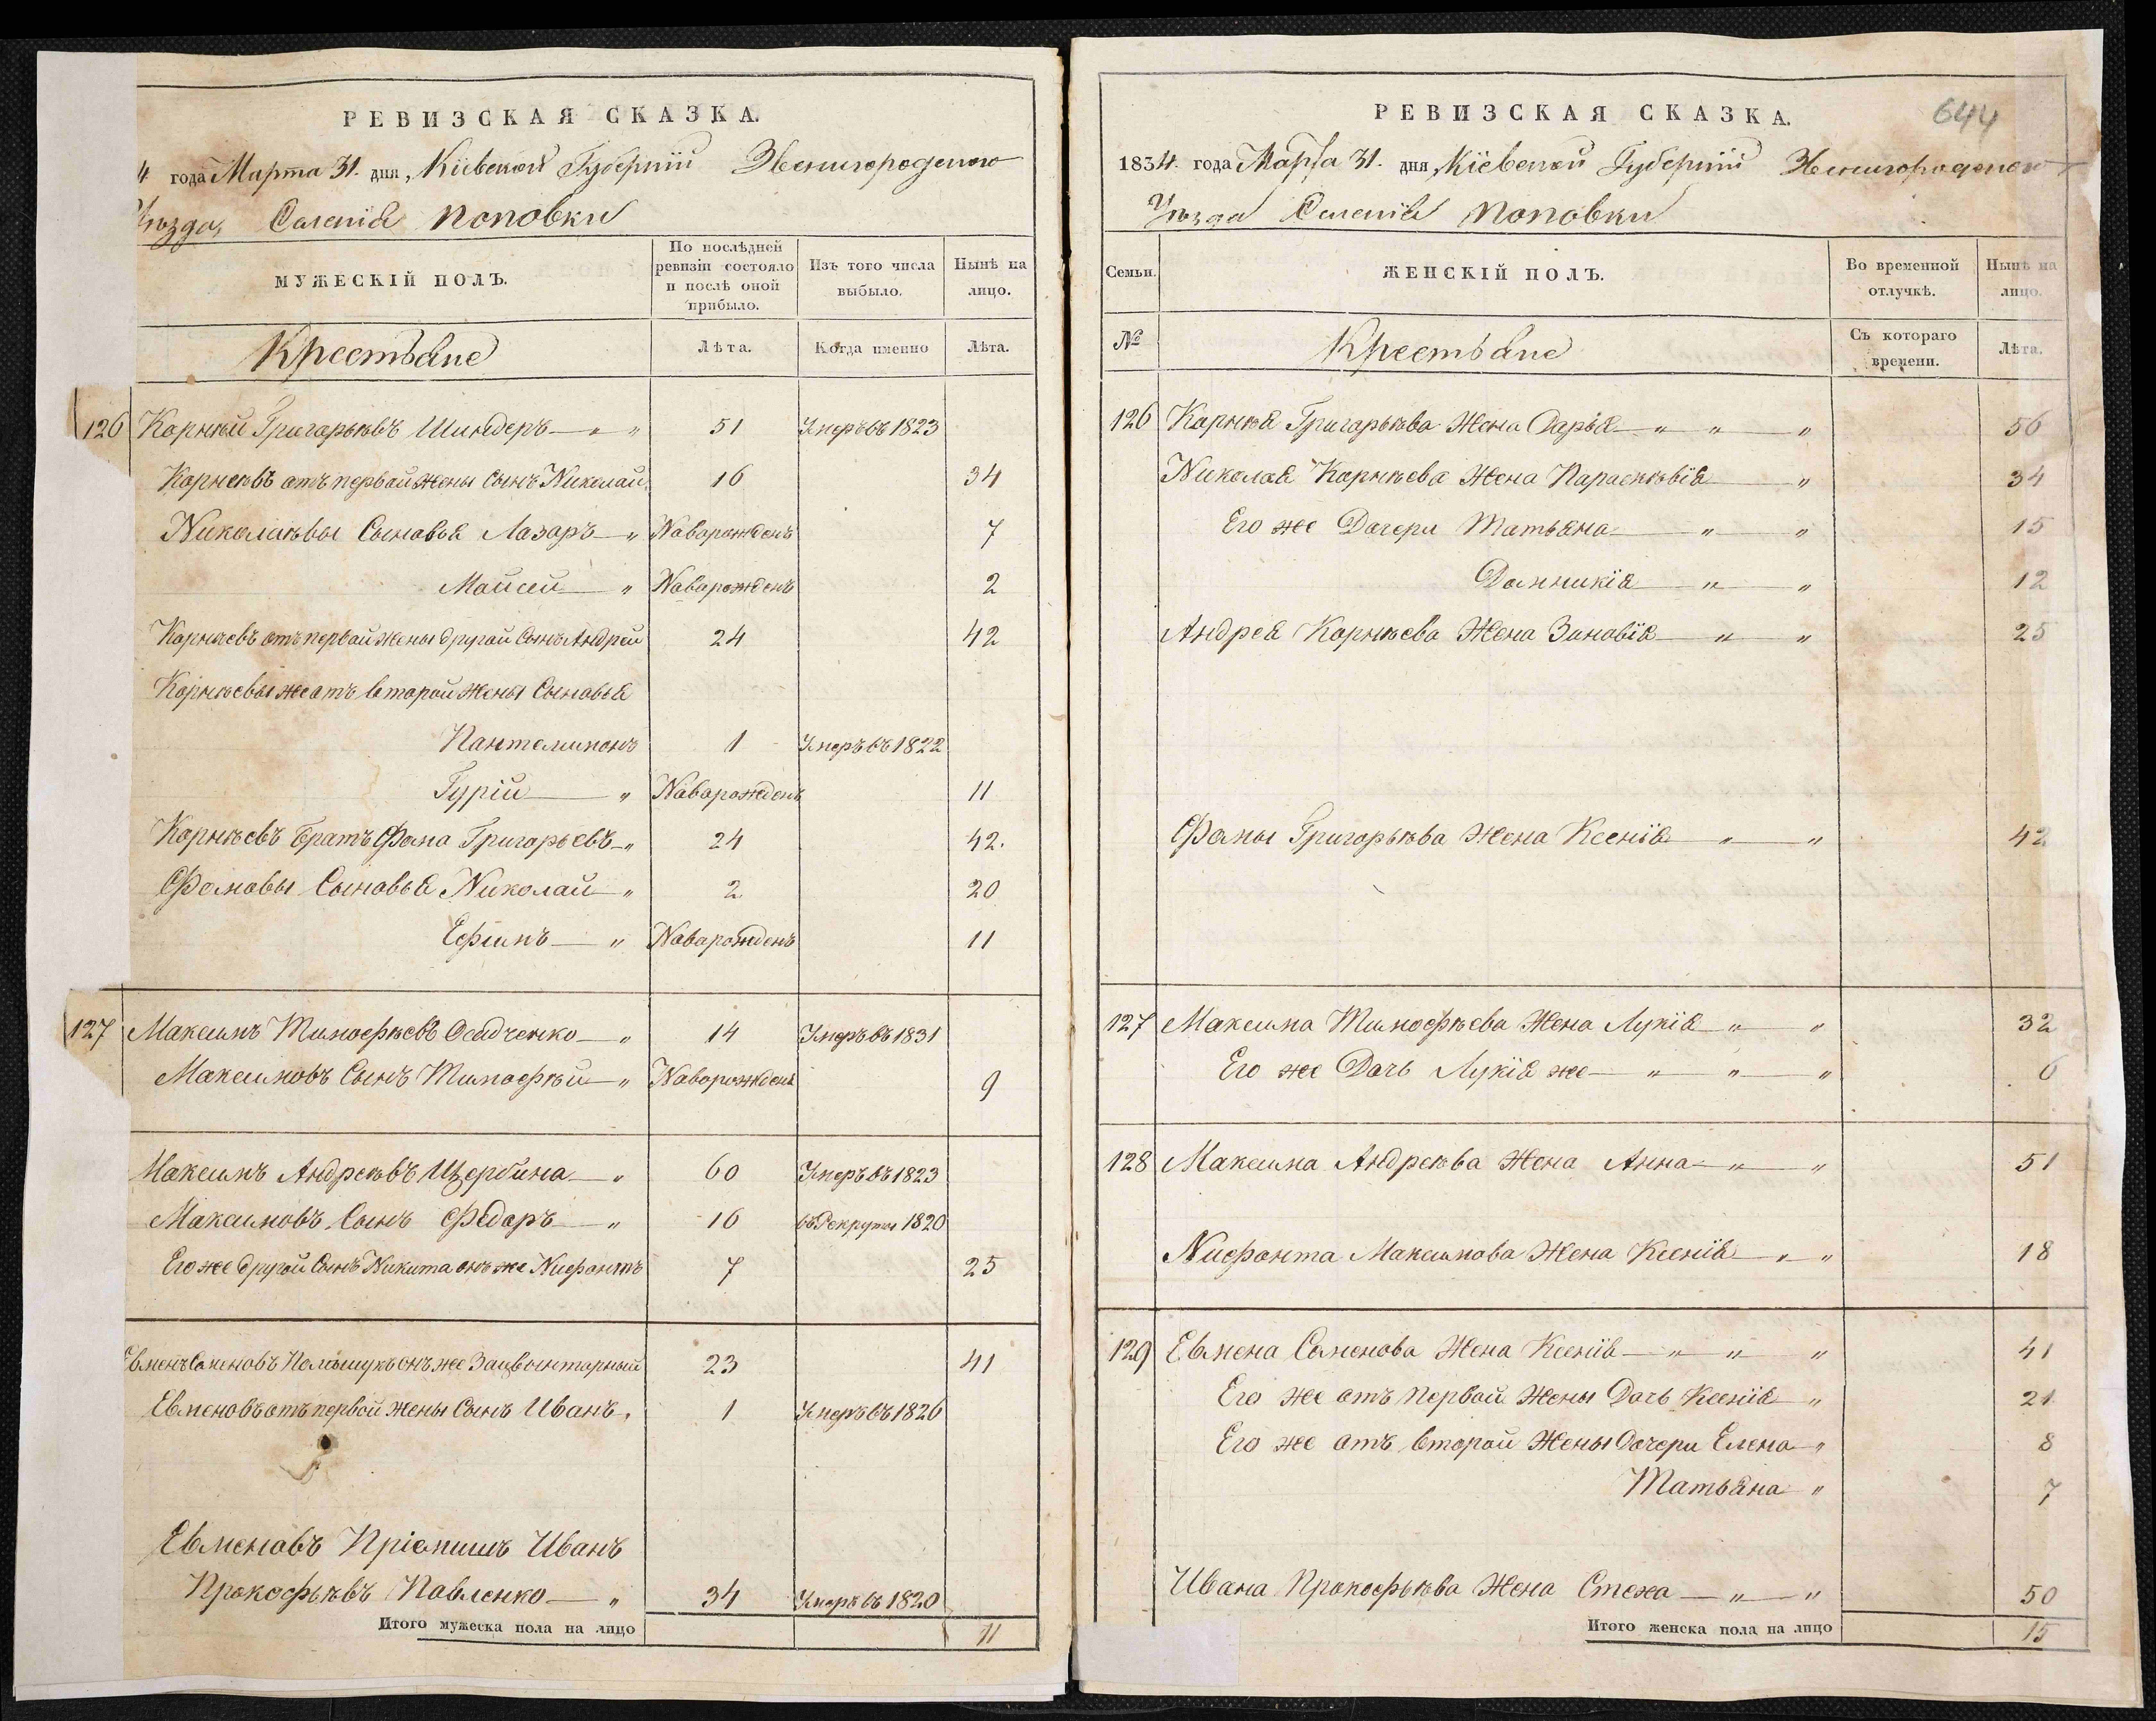 РЕВИЗСКАЯ СКАЗКА.
4 года Марта 31. дня, Кіевской Губерніи Звенигородского
Уѣзда, Селенія Поповки
МУЖЕСКІЙ ПОЛЪ.
По послѣдней ревизіи состояло и послѣ оной прибыло.
Изъ того числа выбыло.
Нынѣ на лицо.
Крестьяне
Лѣта.
Когда именно
Лѣта.
126 Корнѣй Григорьѣвъ Шиндеръ — „ „ 51 Умеръ въ 1823
Корнеѣвъ отъ первой жены Сынъ Николай. 16 34
Николаѣвы Сыновья Лазаръ — „ Наворожденъ 7
Мойсей — „ Наворожденъ 2
Корнѣевъ отъ первой жены другой Сынъ Андрей 24 42
Корнѣевы же отъ второй жены Сыновья
Пантелимонъ 1 Умеръ въ 1822
Гурій — „ Наворожденъ 11
Корнѣевъ Братъ Фома Григорьевъ — „ 24 42.
Фомовы Сыновья Николай — „ 2 20
Ефимъ — „ Наворожденъ 11
127 Максимъ Тимофѣевъ Осадченко — „ 14 Умеръ въ 1831
Максимовъ Сынъ Тимофѣй — „ Наворожденъ 9
Максимъ Андреѣвъ Щербина — „ 60 Умеръ въ 1823
Максимовъ Сынъ Федоръ — „ 16 въ Рекруты 1820
Его же другой Сынъ Никита онъ же Нифонтъ 7 25
Евменъ Семеновъ Полищукъ онъ же 23 41
Евменовъ отъ первой жены Сынъ Иванъ „ 1 Умеръ въ 1826
Евменовъ Пріемишъ Иванъ
Прокофьѣвъ Павленко — „ 34 Умеръ въ 1820
Итого мужеска пола на лицо 11
644
РЕВИЗСКАЯ СКАЗКА.
1834. года Марта 31. дня, Кіевской Губерніи Звенигородского
Уѣзда Селенія Поповки
Семьи.
ЖЕНСКІЙ ПОЛЪ.
Во временной отлучкѣ.
Нынѣ на лицо.
№
Крестьяне
Съ котораго времени.
Лѣта.
126 Корнѣя Григорьѣва Жена Дарья — „ „ „ 56
Николая Корнѣева Жена Параскѣвія — „ 34
Его же Дочери Татьяна — „ „ 15
Домникія — „ „ 12
Андрея Корнѣева Жена Зиновія — „ „ 25
Фомы Григорьѣва Жена Ксенія — „ „ 42
127 Максима Тимофѣева Жена Лукія — „ „ 32
Его же Дочь Лукія же — „ „ „ 6
128 Максима Андреѣва Жена Анна — „ „ 51
Нифонта Максимова Жена Ксенія — „ „ 18
129 Евмена Семенова Жена Ксенія — „ „ „ 41
Его же отъ первой Жены Дочь Ксенія — „ 21
Его же отъ второй Жены Дочери Елена — „ 8
Татьяна — „ 7
Ивана Прокофьѣва Жена Стеха — „ „ 50
Итого женска пола на лицо 15